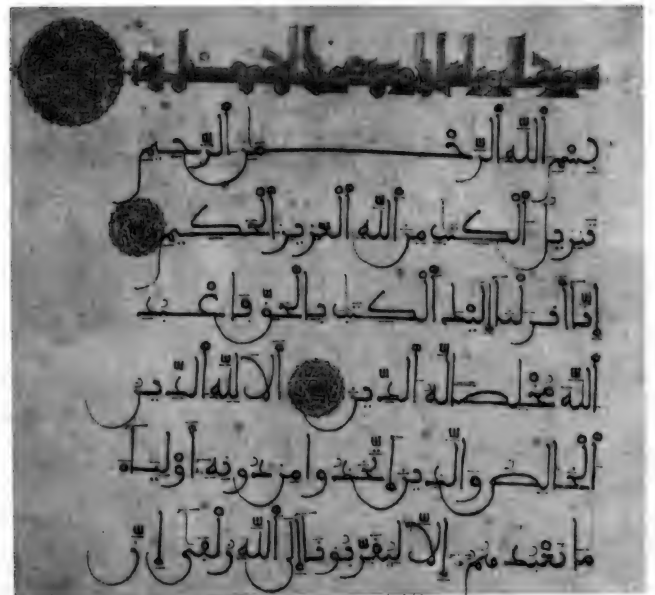 بِسْمِ اللَّهِ الرَّحْمٰنِ الرَّحِيمِ
تَنزِيلُ الْكِتَٰبِ مِنَ اللَّهِ الْعَزِيزِ الْحَكِيمِ
إِنَّا أَنزَلْنَا إِلَيْكَ الْكِتَٰبَ بِالْحَقِّ فَاعْبُدِ
اللَّهَ مُخْلِصًا لَّهُ الدِّينَ أَلَا لِلَّهِ الدِّينُ
الْخَالِصُ وَالَّذِينَ اتَّخَذُوا مِن دُونِهِ أَوْلِيَاءَ
مَا نَعْبُدُهُمْ إِلَّا لِيُقَرِّبُونَا إِلَى اللَّهِ زُلْفَى إِنَّ